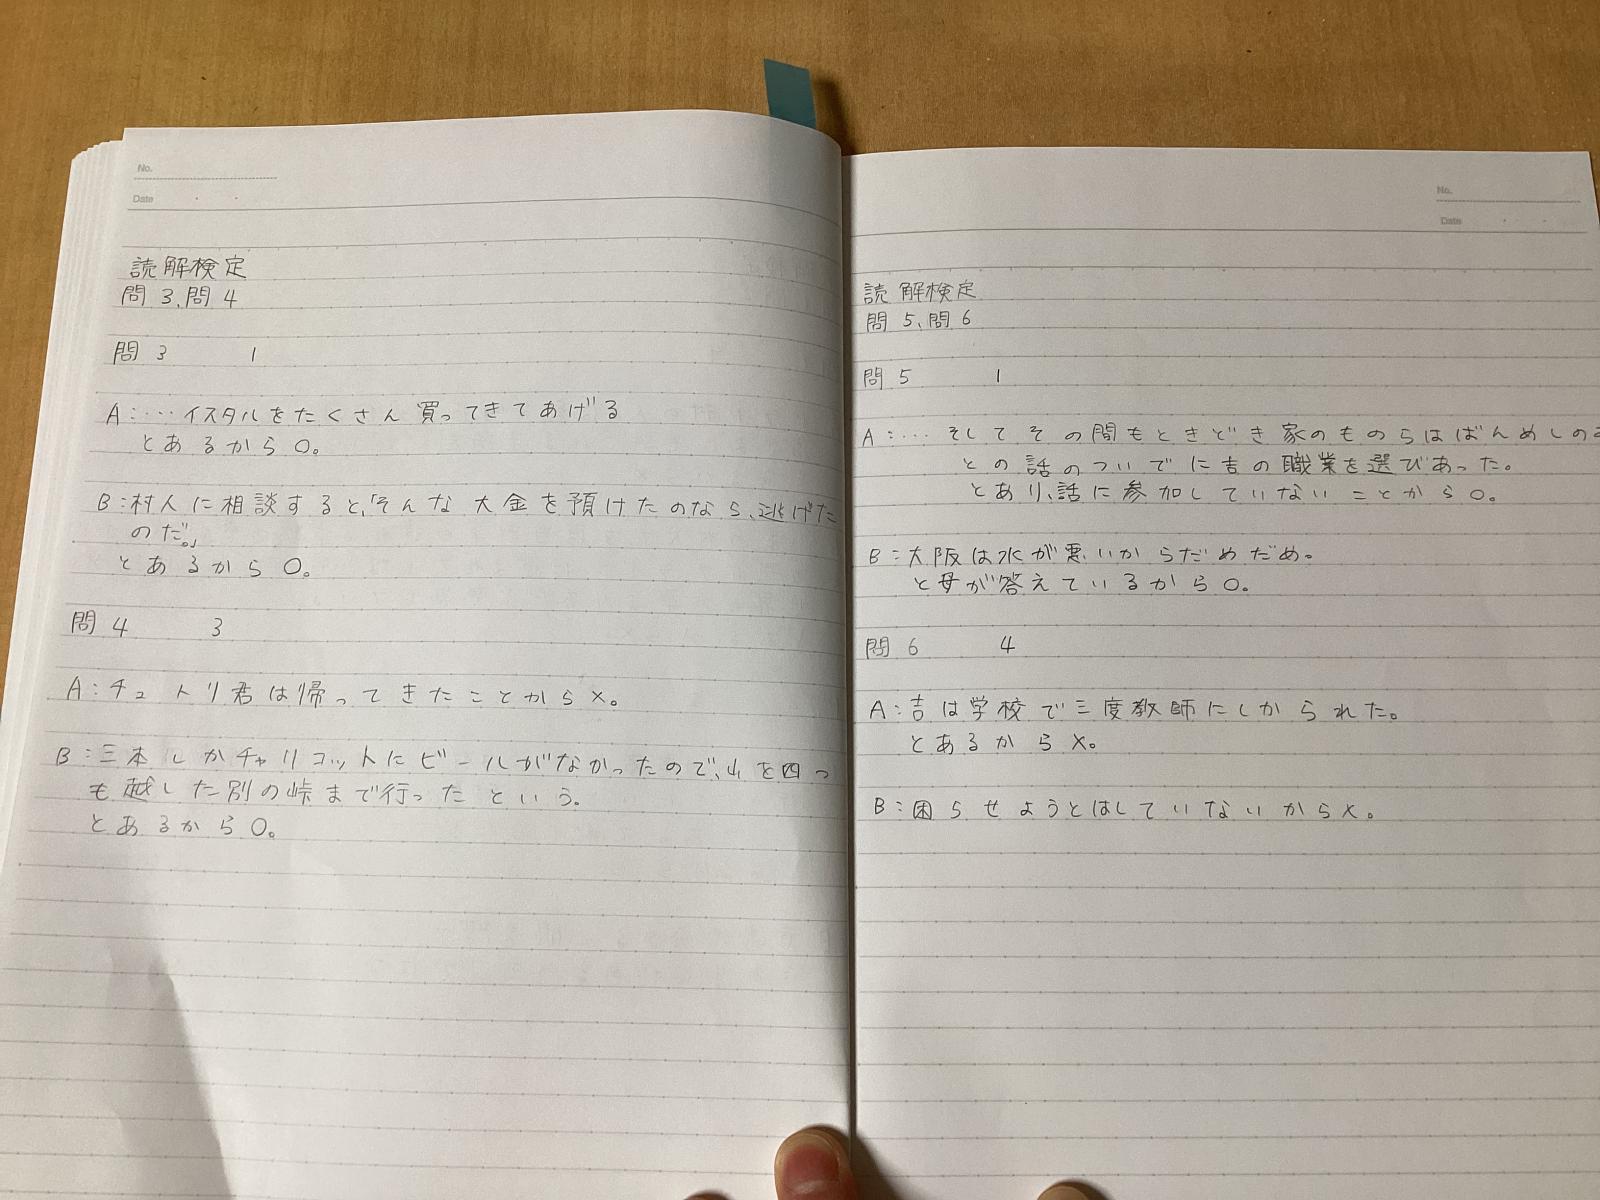 No.
Date
読解検定
問3,問4
問3 1
A:…イスタルをたくさん買ってきてあげる
とあるから○。
B:村人に相談すると、「そんな大金を預けたのなら、逃げた
のだ。」
とあるから○。
問4 3
A:チュトリ君は帰ってきたことから×。
B:三本しかチャリコットにビールがなかったので、山を四つ
も越した別の峠まで行ったという。
とあるから○。
No.
Date
読解検定
問5、問6
問5 1
A:…そしてその間もときどき家のものらはばんめしの
との話のついでに吉の職業を選びあった。
とあり、話に参加していないことから○。
B:大阪は水が悪いからだめだめ。
と母が答えているから○。
問6 4
A:吉は学校で三度教師にしかられた。
とあるから×。
B:困らせようとはしていないから×。